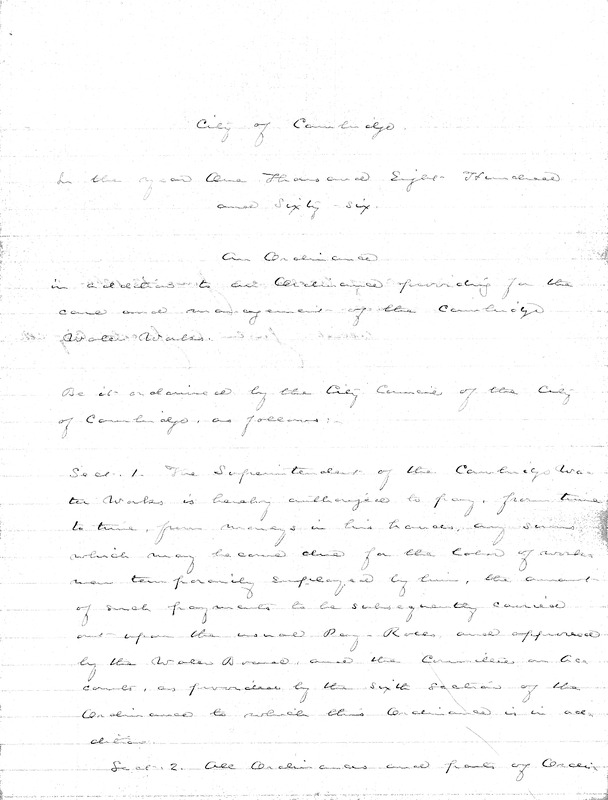 City of Cambridge.
In the year One Thousand Eight Hundred
and Sixty-six.
An Ordinance
in addition to an Ordinance providing for the
care and management of the Cambridge
Water Works.
Be it ordained by the City Council of the City
of Cambridge, as follows:-
Sect. 1. The Superintendent of the Cambridge Wa-
ter Works is hereby authorized to pay, from time
to time, from moneys in his hands, any sums
which may become due for the labor of work-
men temporarily employed by him, the amount
of such payments to be subsequently carried
out upon the usual Pay-Rolls, and approved
by the Water Board, and the Committee on Ac-
counts, as provided by the Sixth Section of the
Ordinance to which this Ordinance is in ad-
dition.
Sect. 2. All Ordinances and parts of Ordin-